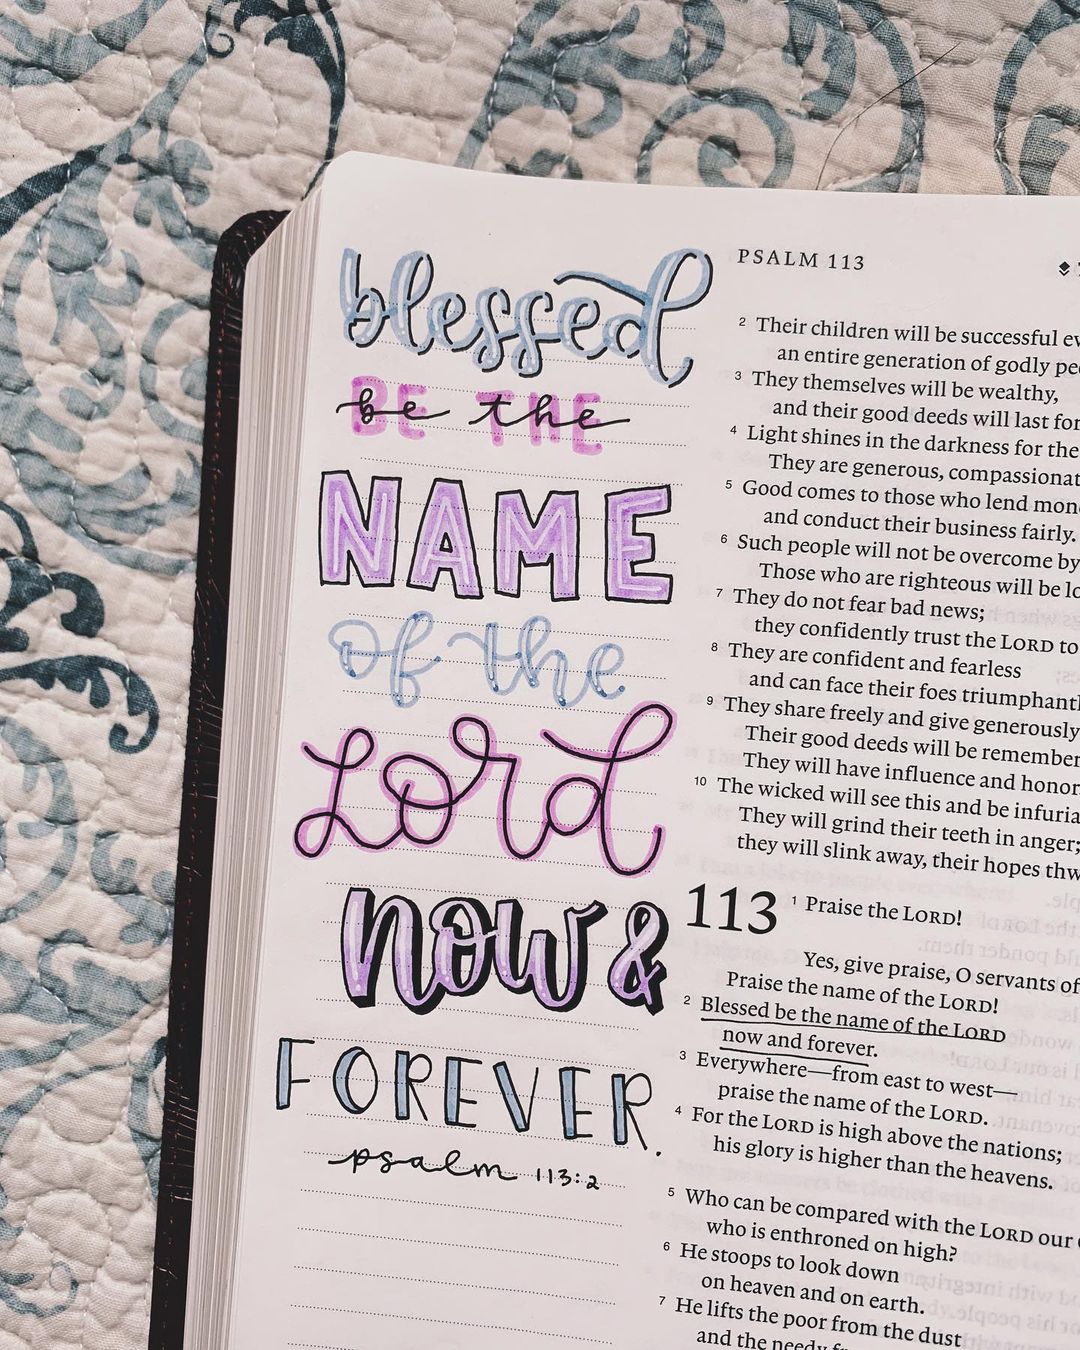 blessed
BE THE
be the
NAME
of the
Lord
now &
FOREVER.
psalm 113:2
PSALM 113
2 Their children will be successful
an entire generation of godly
3 They themselves will be wealthy,
and their good deeds will last
4 Light shines in the darkness for the
They are generous,
5 Good comes to those who lend
and conduct their business fairly.
6 Such people will not be overcome by
Those who are righteous will be
7 They do not fear bad news;
they confidently trust the LORD to
8 They are confident and fearless
and can face their foes
9 They share freely and give generously
Their good deeds will be
They will have influence and honor.
10 The wicked will see this and be
They will grind their teeth in anger;
they will slink away, their hopes
113 1 Praise the LORD!
Yes, give praise, O servants of
Praise the name of the LORD!
2 Blessed be the name of the LORD
now and forever.
3 Everywhere—from east to west—
praise the name of the LORD.
4 For the LORD is high above the nations;
his glory is higher than the heavens.
5 Who can be compared with the LORD our
who is enthroned on high?
6 He stoops to look down
on heaven and on earth.
7 He lifts the poor from the dust
and the needy